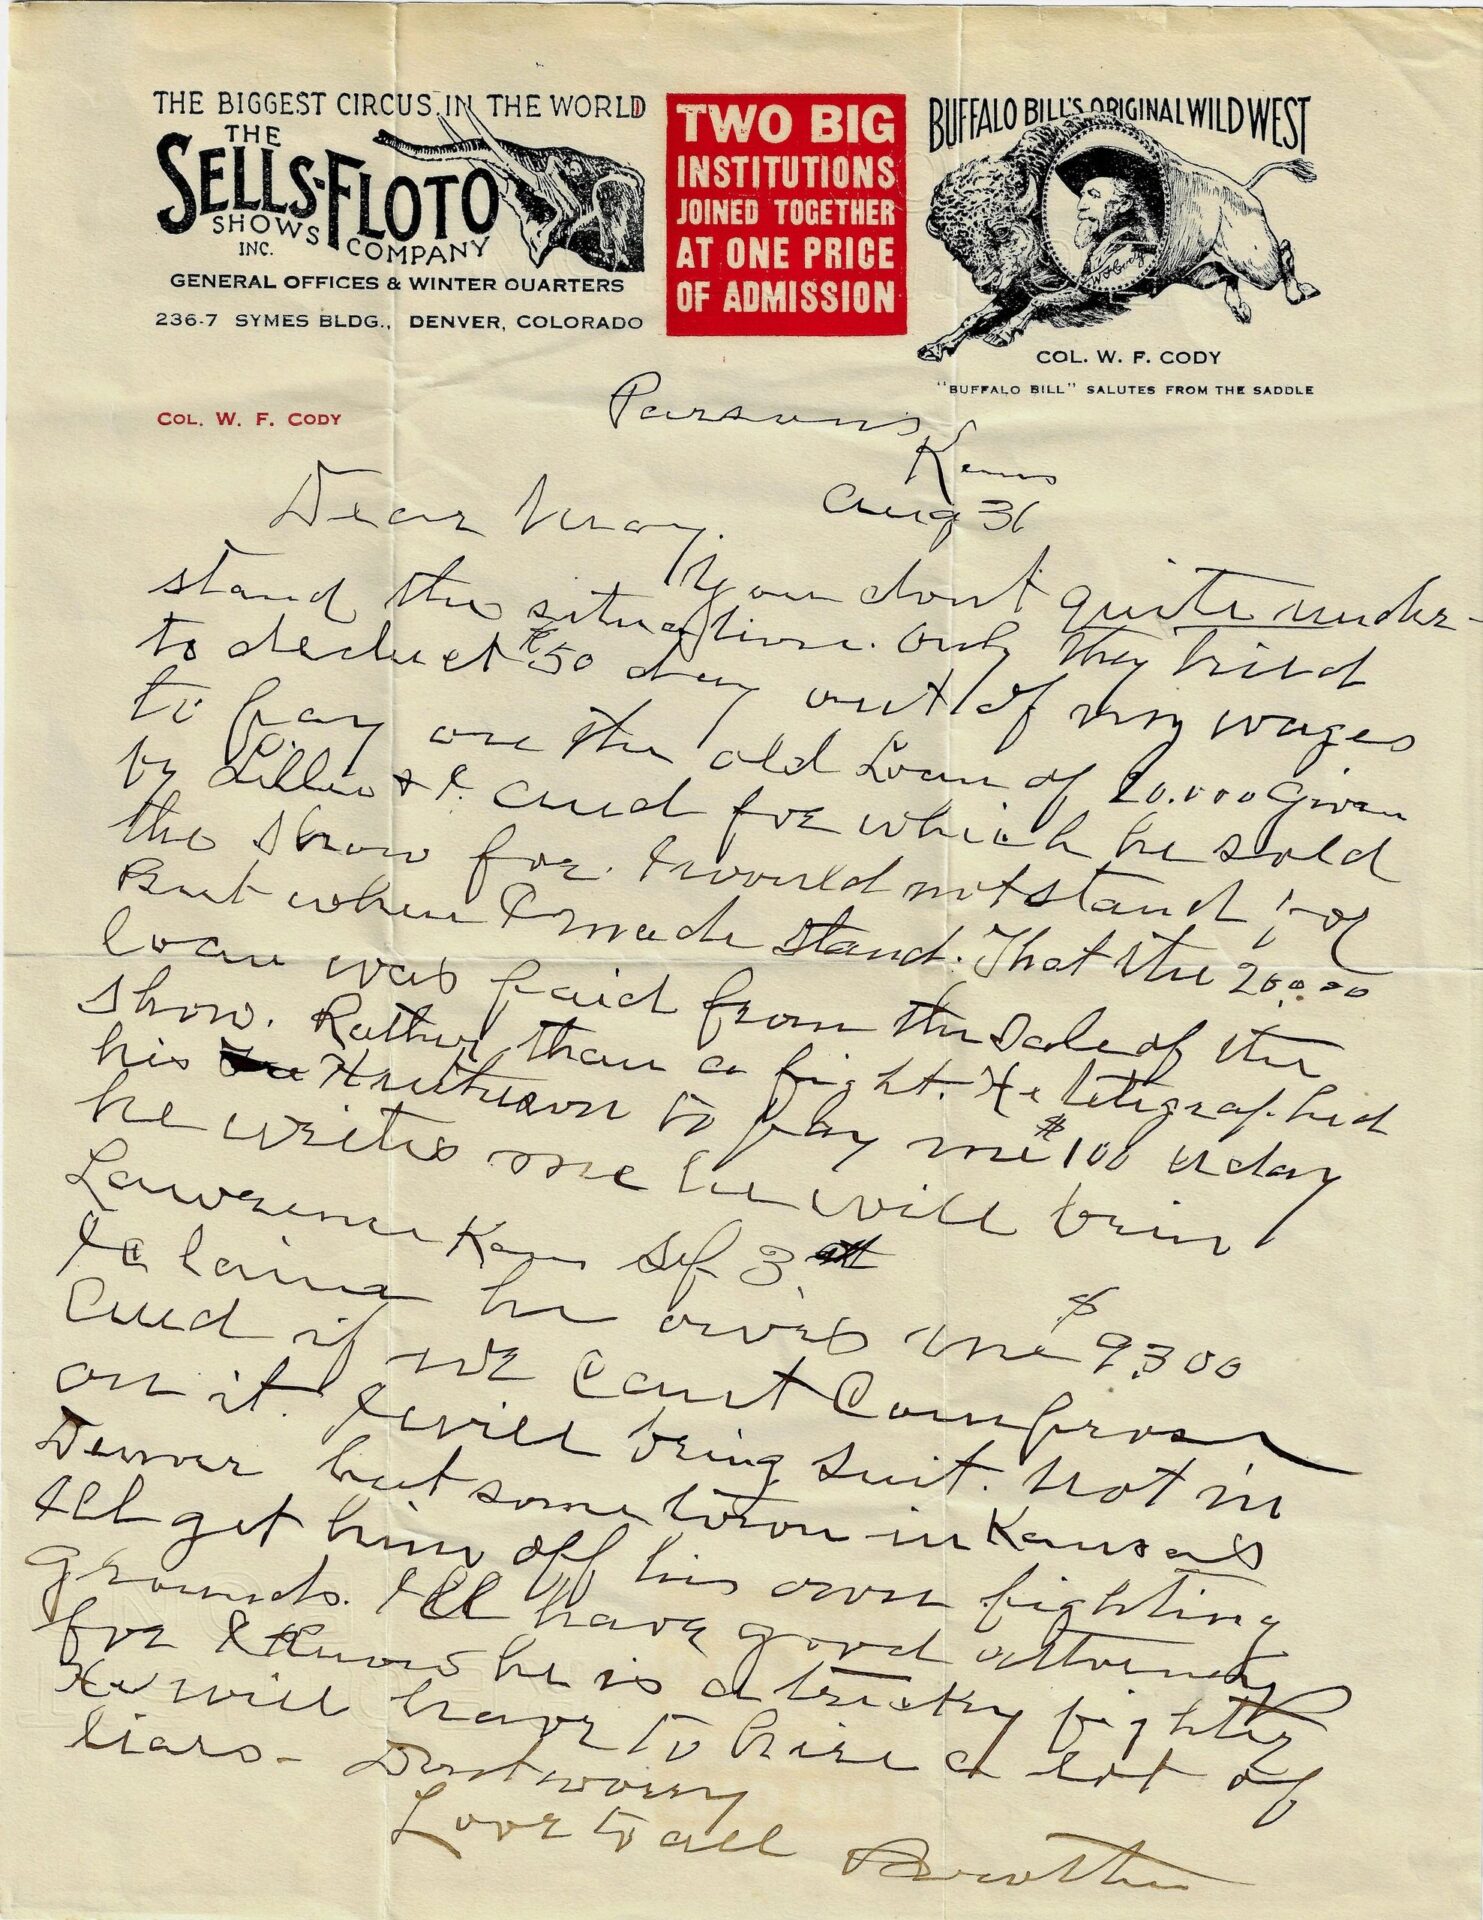 THE BIGGEST CIRCUS IN THE WORLD
THE
SELLS-FLOTO
SHOWS COMPANY
INC.
GENERAL OFFICES & WINTER QUARTERS
236-7 SYMES BLDG., DENVER, COLORADO
TWO BIG
INSTITUTIONS
JOINED TOGETHER
AT ONE PRICE
OF ADMISSION
BUFFALO BILL'S ORIGINAL WILD WEST
W F Cody
COL. W. F. CODY
"BUFFALO BILL" SALUTES FROM THE SADDLE
COL. W. F. CODY
Parsons
Kans
Aug 31
Dear May.
You dont quite under-
stand the situation. Only they tried
to deduct $50 day out of my wages
to pay on the old Loan of 20.000 given
by Lillie & I. and for which he sold
the show for. I would not stand for
But when I made stand. That the 20.000
loan was paid from the Sale of the
show. Rather than a fight. He telegraphed
his to pay me $100 a day
he writes me he will be in
Lawrence Kan Sep 3
I claim he owes me $9300
And if we cant Compromise
on it. I will bring suit. Not in
Denver but some town in Kansas
Ill get him off his own fighting
grounds. Ill have good attorneys
for I know he is a tricky fighter
He will have to hire a lot of
liars- Dont worry
Love to all Brother